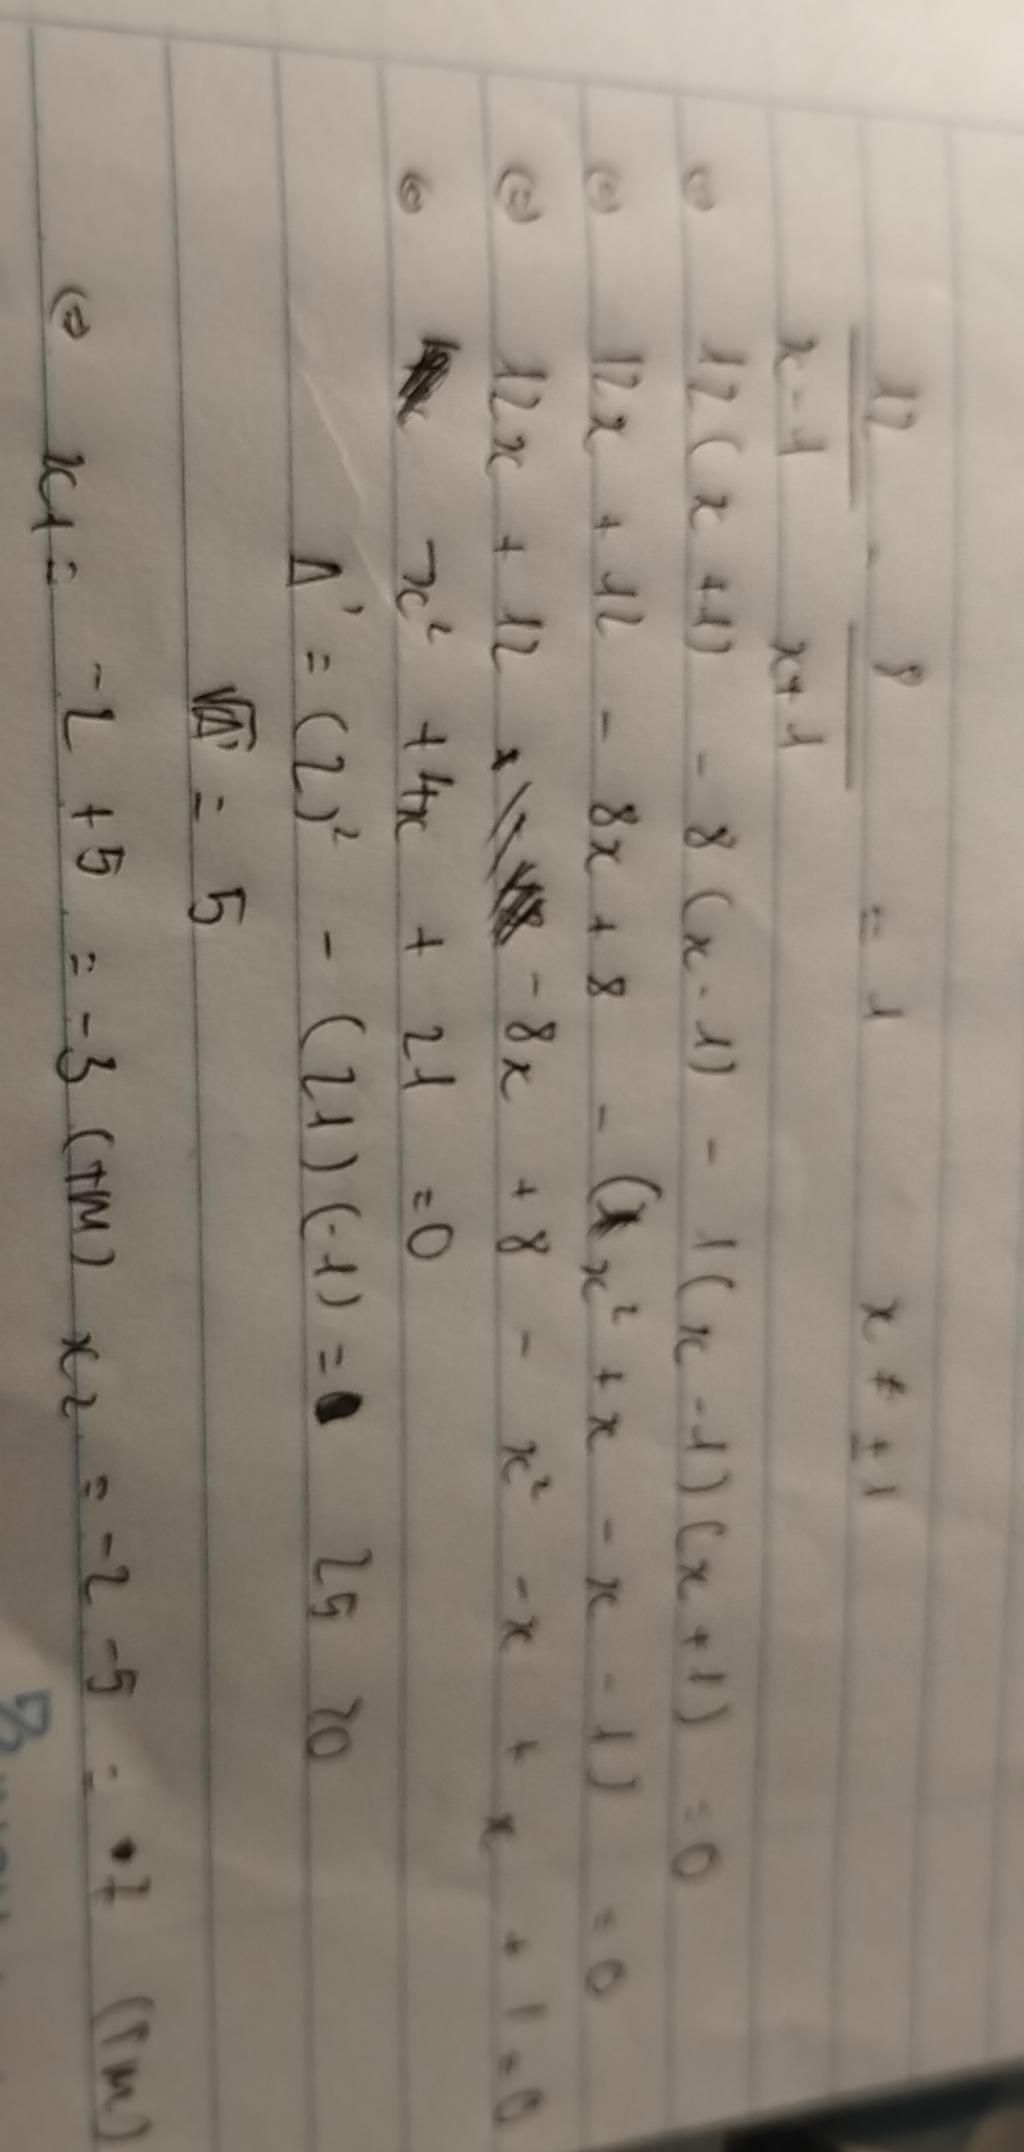 12/(x-1) - 8/(x+1) = 1 x ≠ ±1
(=) 12(x+1) - 8(x-1) - 1(x-1)(x+1) = 0
(=) 12x + 12 - 8x + 8 - (x² + x - x - 1) = 0
(=) 12x + 12 - 8x + 8 - x² - x + x + 1 = 0
(=) -x² + 4x + 21 = 0
Δ' = (2)² - (21)(-1) = 25 >0
√Δ' = 5
(=) x1 = -2 + 5 = -3 (TM) x2 = -2 -5 = 7 (TM)